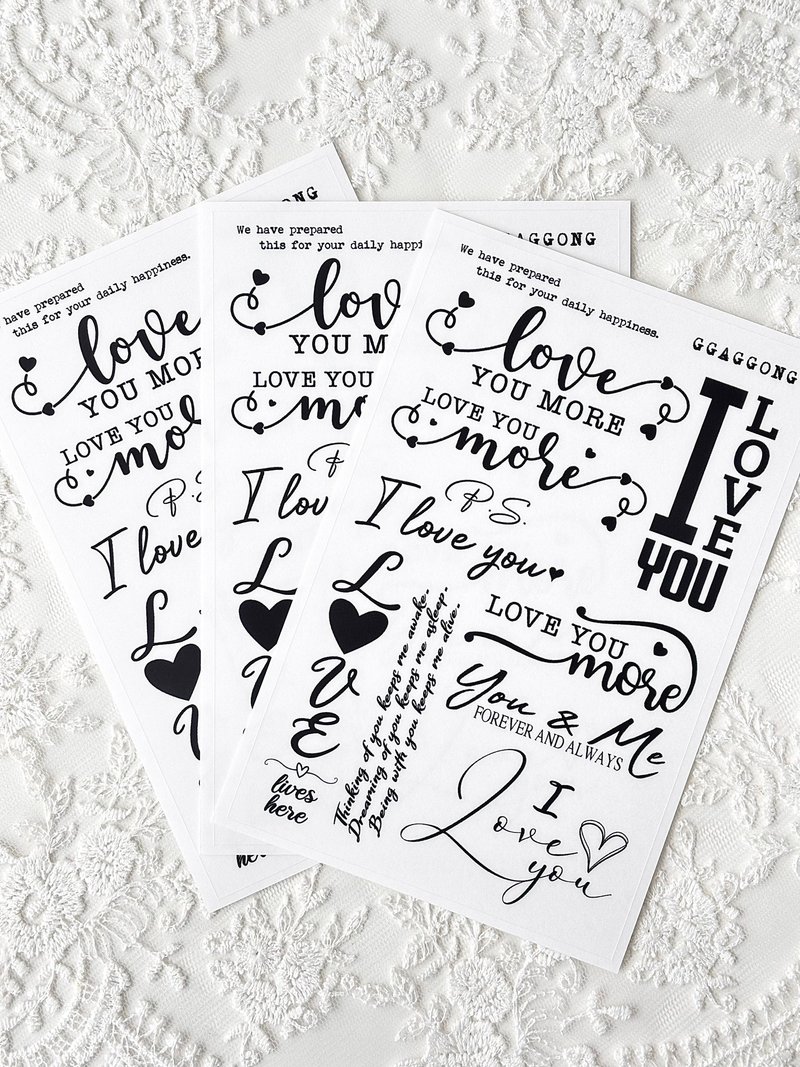 ONG
have prepared
this for your daily happiness.
love
YOU MOR
LOVE YOU
mo
P.S
I love
L
he
We have prepared
this for your daily happi
GGAGGONG
lov
YOU M
LOVE YOU
mo
P
I lov
L
We have prepared
this for your daily happiness.
GGAGGONG
love
YOU MORE
LOVE YOU
more
I
LOVE
YOU
P.S.
I love you
L
VE
lives
here
Thinking of you keeps me awake.
Dreaming of you keeps me asleep.
Being with you keeps me alive.
LOVE YOU
more
You & Me
FOREVER AND ALWAYS
I
Love
you